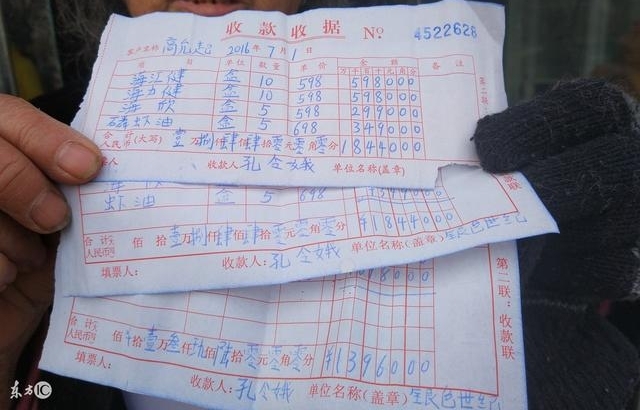 收款收据 No 4522626
客户名称 高允起 2016年7月1日
项目 单位 数量 单价 金额 备注
万 千 百 十 元 角 分
海江健 盒 10 598 598000
海力健 盒 10 598 598000
海欣 盒 5 598 299000
磷虾油 盒 5 698 349000
合计人民币(大写) 壹万捌仟肆佰肆拾零元零角零分 1844000
票人 收款人 孔令娥 单位名称(盖章)
第二联
盒
虾油 盒 5 698
合计人民币 佰 壹万捌仟肆佰肆拾零元零角零分 ¥1844000
填票人: 收款人: 孔令娥 单位名称(盖章)
款联
合计人民币 佰 拾壹万叁仟玖佰陆拾零元零角零分 ¥1396000
填票人: 收款人: 孔令娥 单位名称(盖章)
第二联:收款联
东方IC